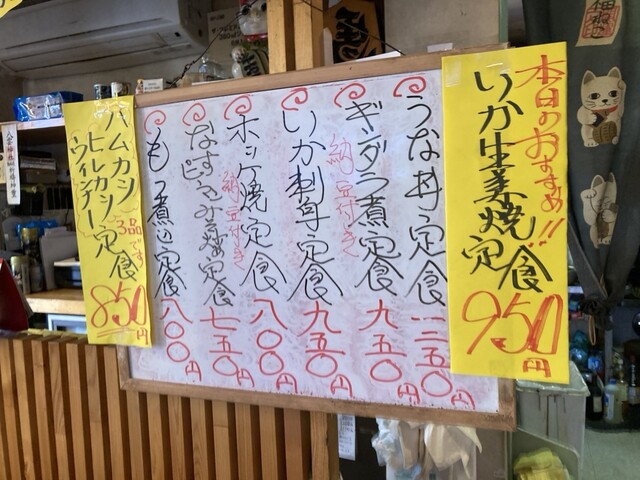 本日のおすすめ!!
いか生姜焼定食
950円
うな丼定食 一二五〇円
ギンダラ煮定食 九五〇円
納豆付き
いか刺身定食 九五〇円
ホッケ焼定食 八〇〇円
納豆付き
なす ピーみそ炒め定食 七五〇円
もつ煮込定食 八〇〇円
ハムカツ
ヒレカツ定食
ウィンナー
3品です
850円